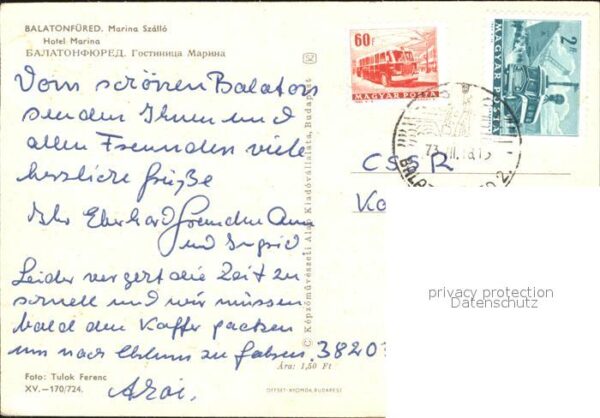 BALATONFÜRED. Marina Szálló
Hotel Marina
БАЛАТОНФЮРЕД. Гостиница Марина
Vom schönen Balaton
senden Ihnen und
allen Freunden viele
herzliche Grüße
Ihr Eberhard
und Ingrid
Leider vergeht die Zeit zu
schnell und wir müssen
bald den Koffer packen
um nach Ehlum zu fahren.
Foto: Tulok Ferenc
XV.—170/724.
© Képzőművészeti Alap Kiadóvállalata, Budapest
Ára: 1,50 Ft
OFFSET-NYOMDA, BUDAPEST
60f
MAGYAR POSTA
2 Ft
MAGYAR POSTA
73
2.
CSSR
Ko
3820
privacy protection
Datenschutz